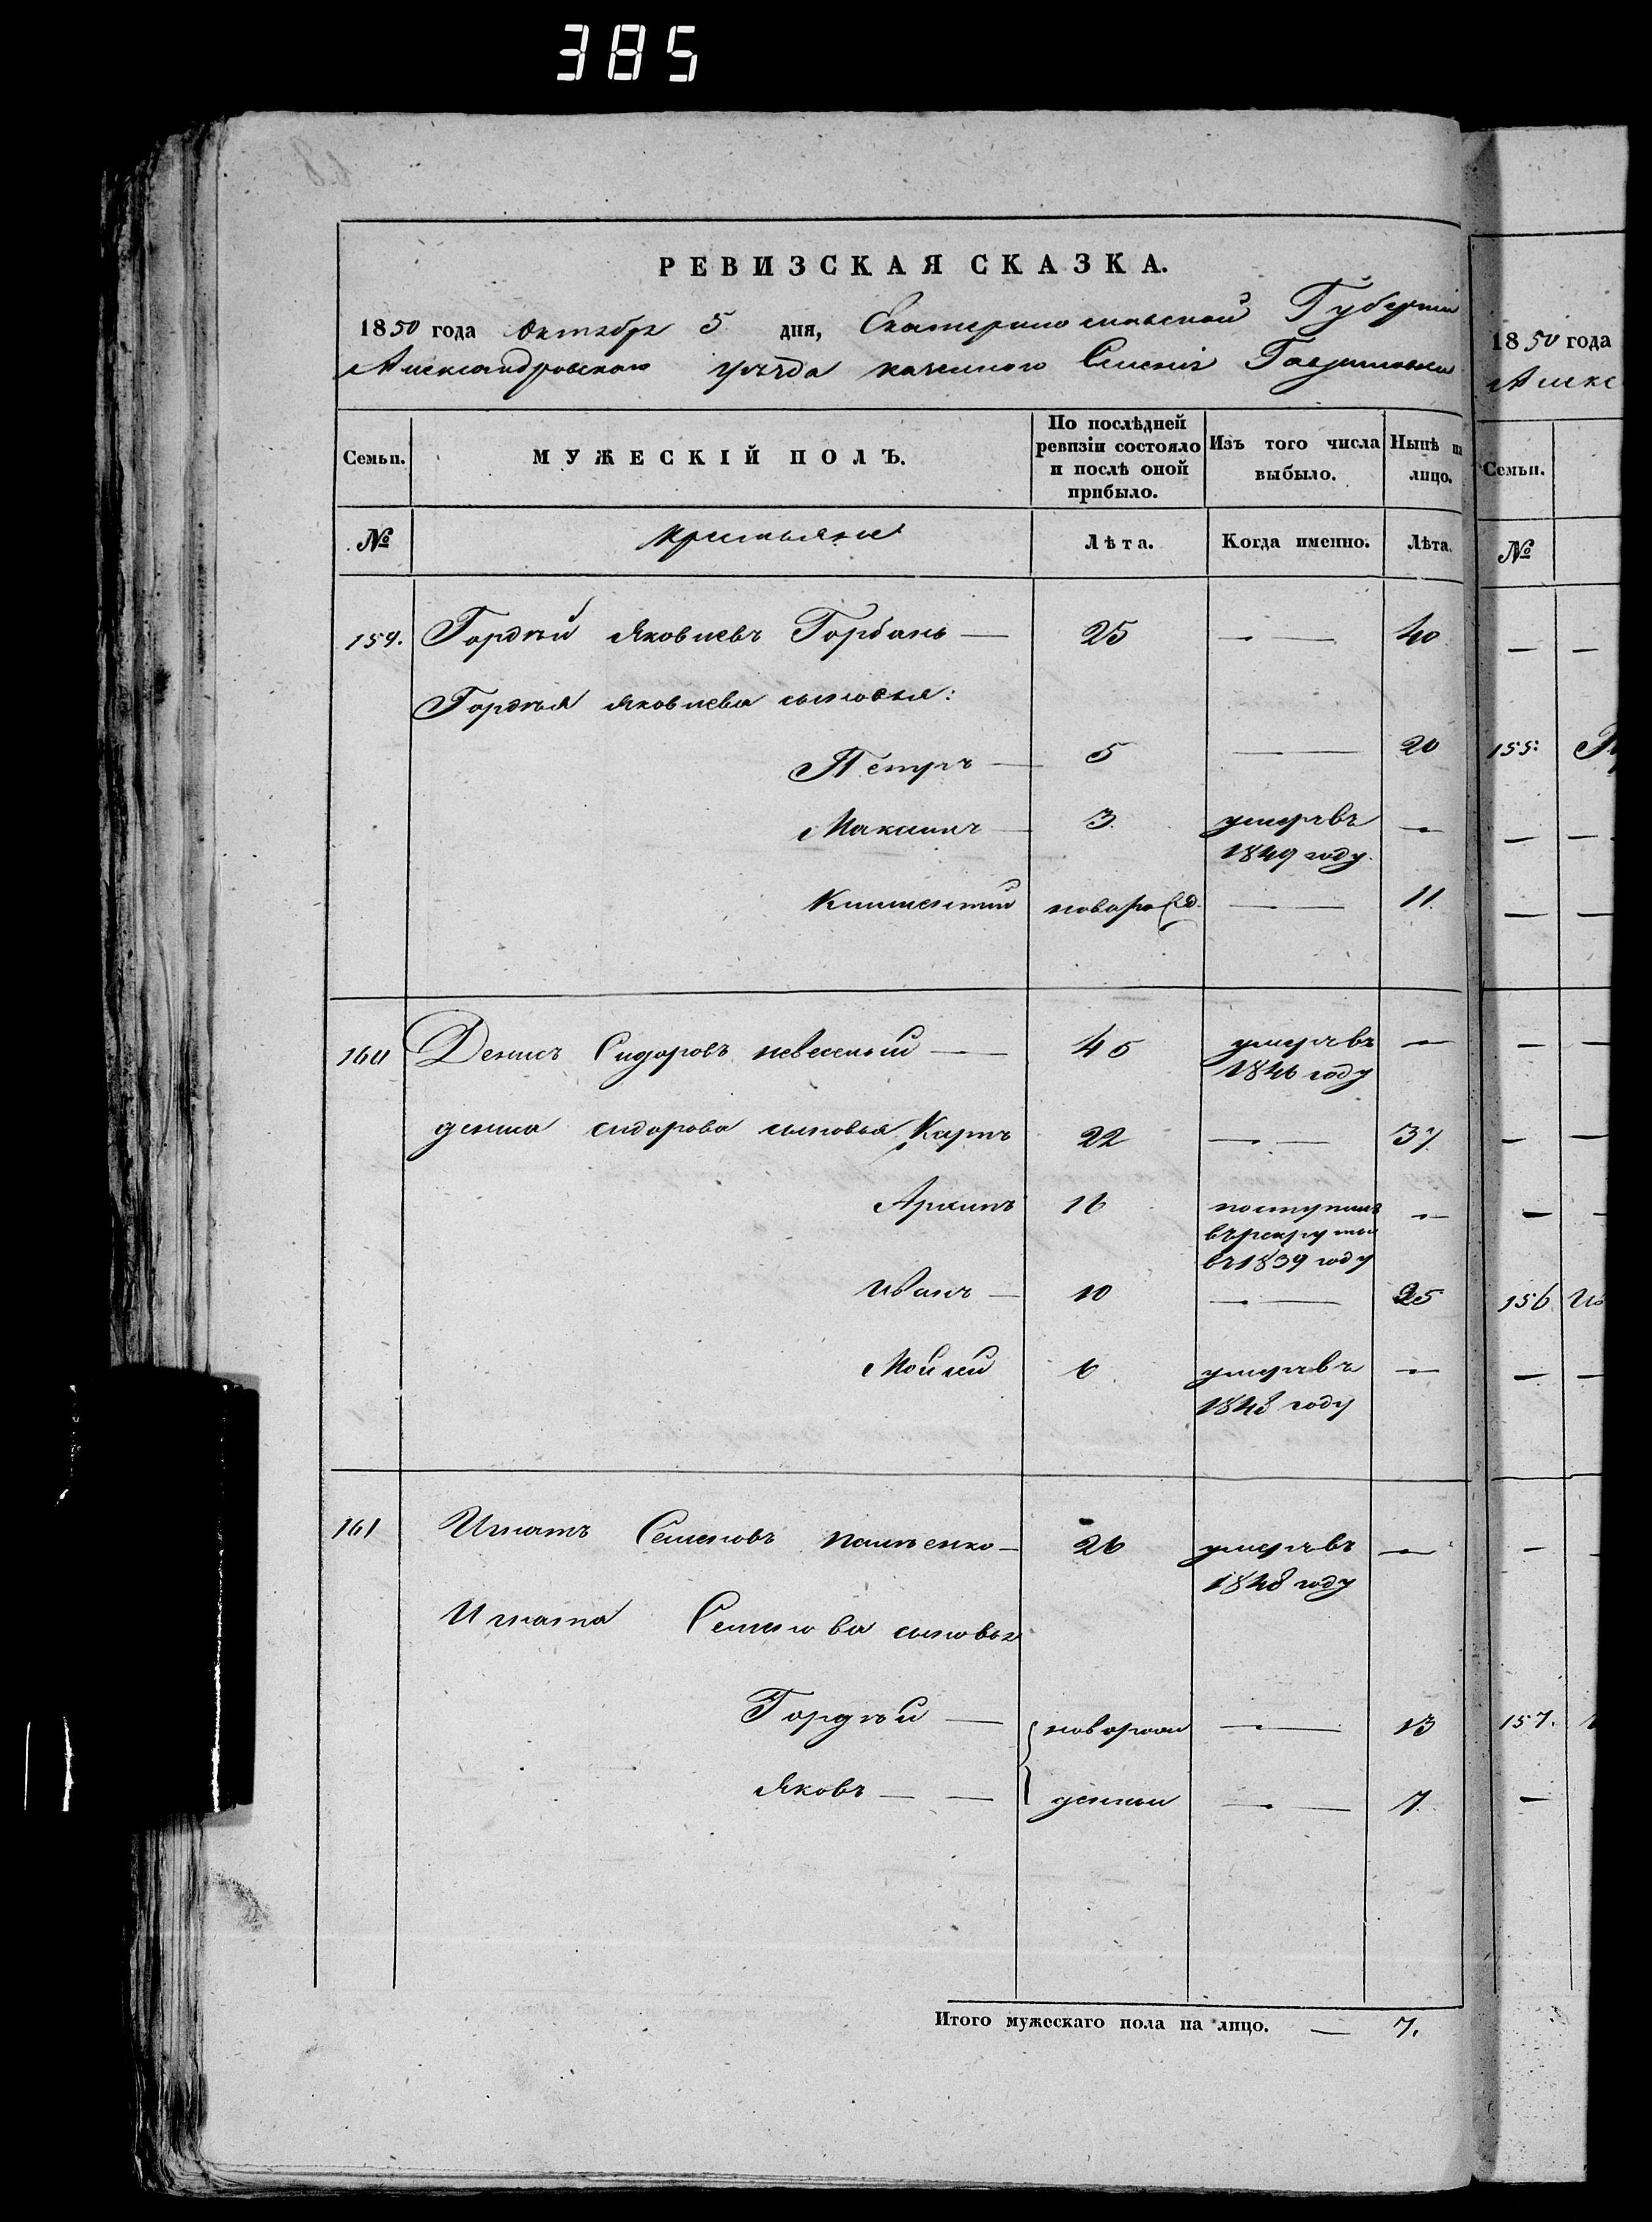 385
РЕВИЗСКАЯ СКАЗКА.
1850 года Октября 5 дня, Екатеринославской Губерніи
Александровскаго уѣзда казеннаго Селенія Гавриловки
Семьи.
МУЖЕСКІЙ ПОЛЪ.
По послѣдней ревизіи состояло и послѣ оной прибыло.
Изъ того числа выбыло.
Нынѣ на лицо.
№
крестьяне
Лѣта.
Когда именно.
Лѣта.
159. Гордѣй Яковлевъ Горбань — 25 — — 40
Гордѣя Яковлева сыновья:
Петръ — 5 — — 20
Максимъ — 3. умеръ въ —
1849 году.
Климентий новорожд. — — 11.
160 Денисъ Сидоровъ невеселый — 45 умеръ въ —
1846 году
дениса сидорова сыновья Карпъ 22 — — 37
Архипъ 16 поступилъ —
въ рекруты
въ 1839 году
Иванъ — 10 — — 25
Мойсей 6 умеръ въ —
1848 году
161 Игнатъ Семеновъ — 26 умеръ въ —
1848 году
Игната Семенова сыновья
Гордѣй — новорож — — 13
Яковъ — — денныи — — 7.
Итого мужескаго пола на лицо. — 7.
1850 года
Алекс
Семьи.
№
155.
156 Ив
157.